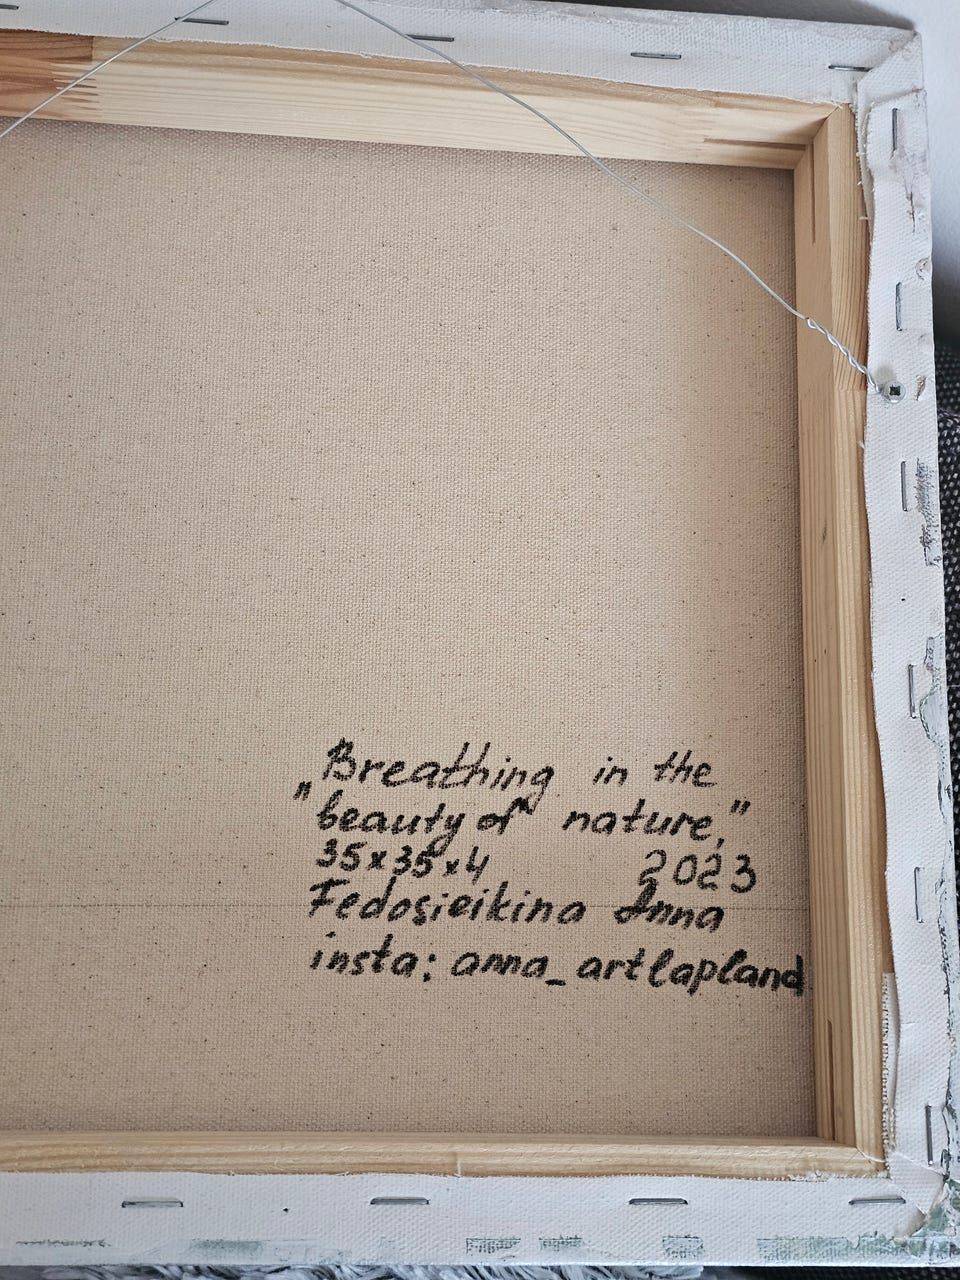 „Breathing in the
beauty of nature,"
35x35x4 2023
Fedosieikina Anna
insta: anna_artlapland